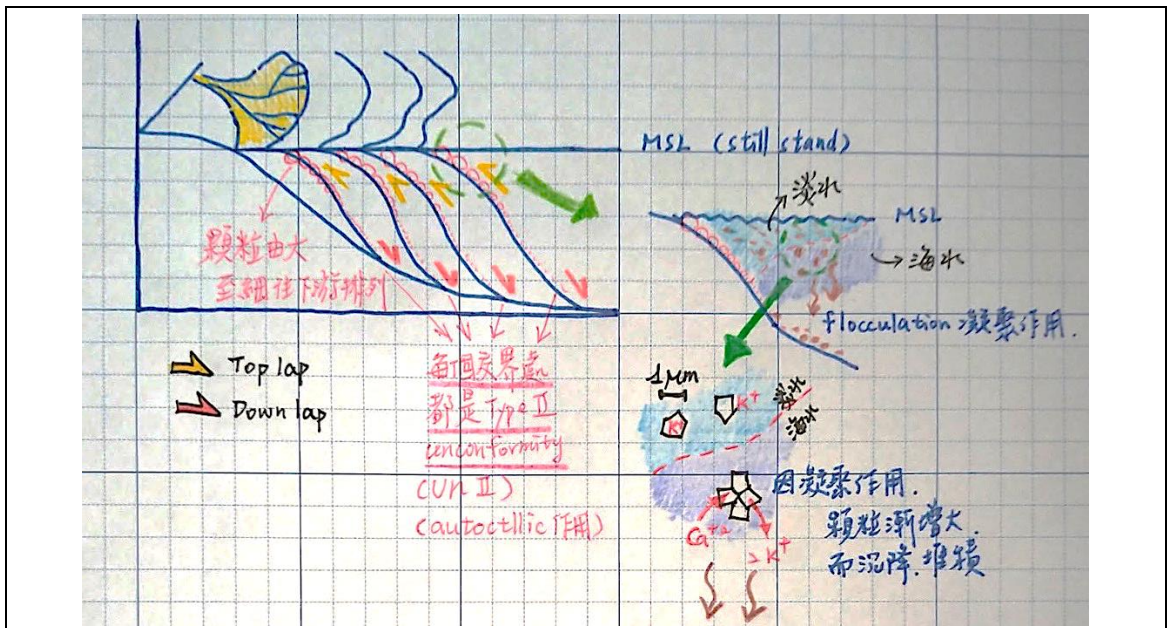 MSL (still stand)
淡水
MSL
海水
顆粒由大
至細往下游排列
flocculation 凝聚作用.
Top lap
Down lap
每個交界處
都是Type II
unconformity
(Un II)
(autoctllic 作用)
1μm
K+
K+
淡水
海水
因凝聚作用.
顆粒漸增大.
而沉降.堆積
Ca+2
2K+